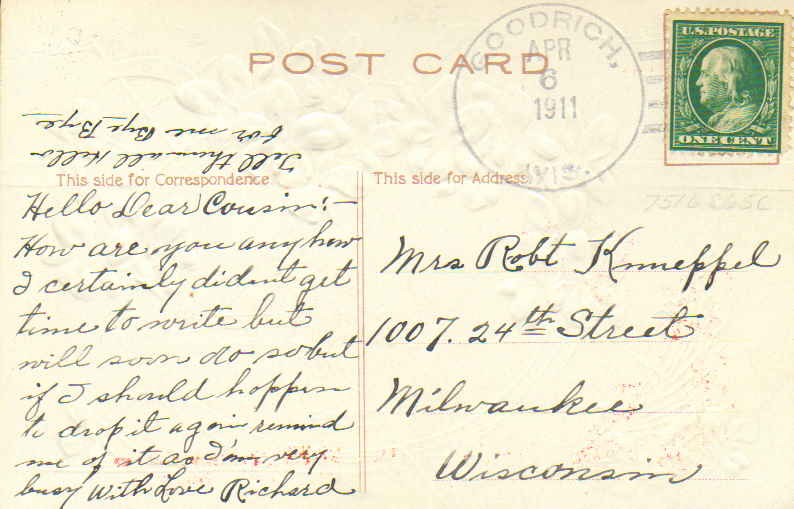 POST CARD
GOODRICH,
APR
6
1911
WIS.
U.S. POSTAGE
ONE CENT
Tell them all Hello
for me Bye Bye
This side for Correspondence
This side for Address
Hello Dear Cousin:-
How are you any how
I certainly dident get
time to write but
will soon do so but
if I should happen
to drop it again remind
me of it as I'm very
busy With Love Richard
Mrs Robt Knueppel
1007. 24th Street
Milwaukee
Wisconsin